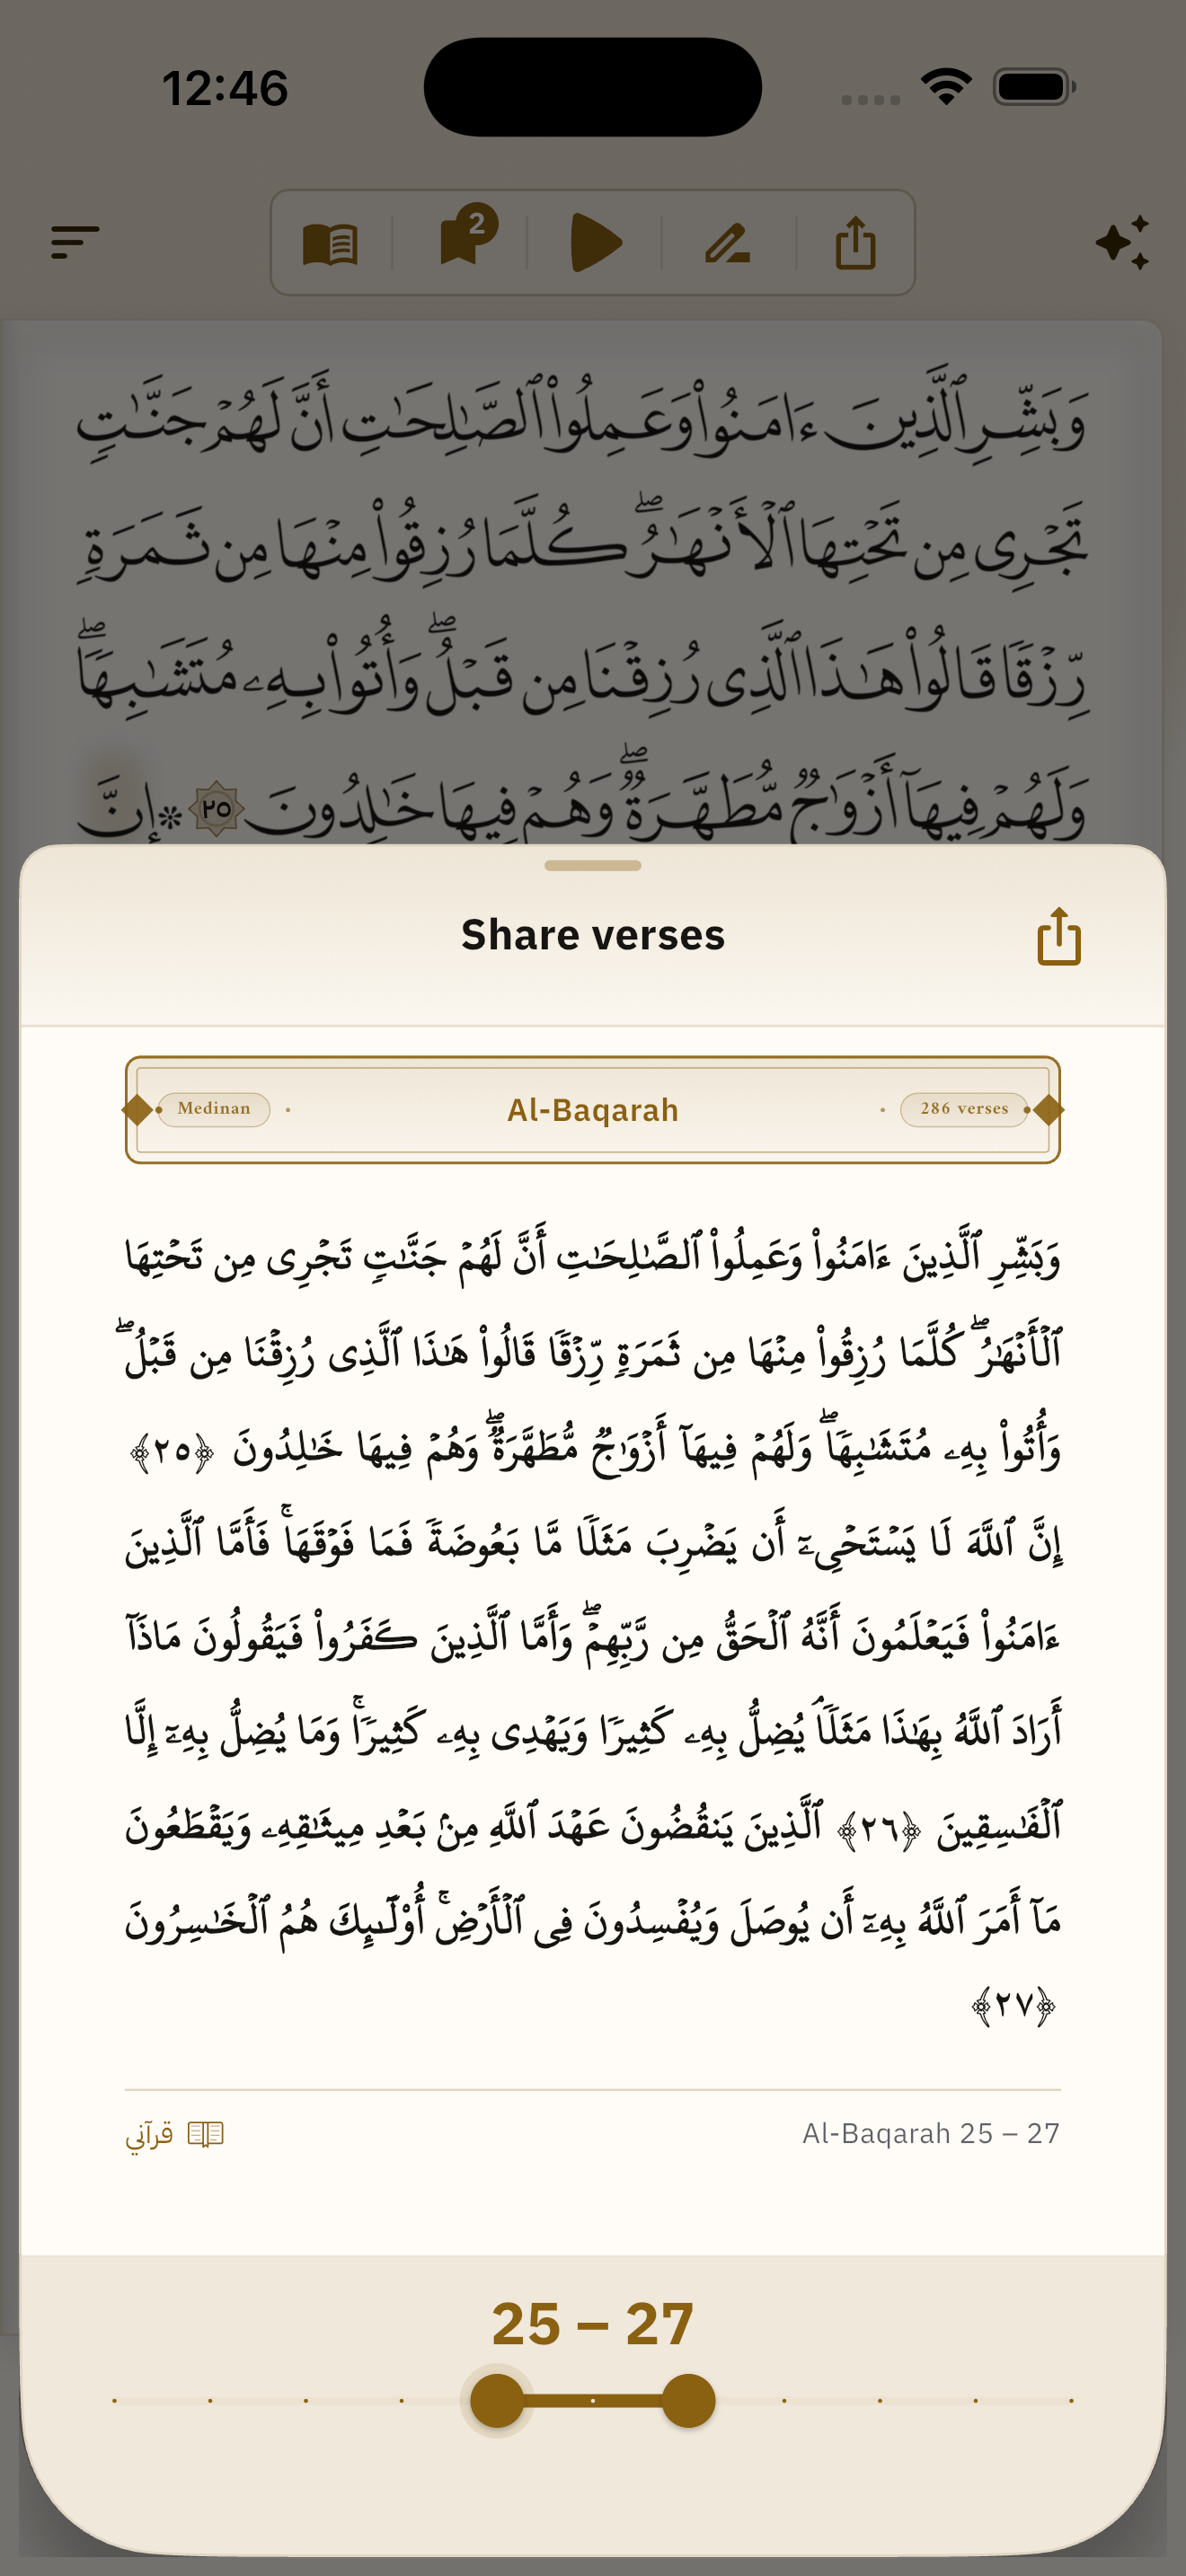 12:46
2
وَبَشِّرِ ٱلَّذِينَ ءَامَنُواْ وَعَمِلُواْ ٱلصَّٰلِحَٰتِ أَنَّ لَهُمۡ جَنَّٰتٖ
تَجۡرِي مِن تَحۡتِهَا ٱلۡأَنۡهَٰرُۖ كُلَّمَا رُزِقُواْ مِنۡهَا مِن ثَمَرَةٖ
رِّزۡقٗا قَالُواْ هَٰذَا ٱلَّذِي رُزِقۡنَا مِن قَبۡلُۖ وَأُتُواْ بِهِۦ مُتَشَٰبِهٗاۖ
وَلَهُمۡ فِيهَآ أَزۡوَٰجٞ مُّطَهَّرَةٞۖ وَهُمۡ فِيهَا خَٰلِدُونَ ٢٥ * إِنَّ
Share verses
Medinan
Al-Baqarah
286 verses
وَبَشِّرِ ٱلَّذِينَ ءَامَنُواْ وَعَمِلُواْ ٱلصَّٰلِحَٰتِ أَنَّ لَهُمۡ جَنَّٰتٖ تَجۡرِي مِن تَحۡتِهَا
ٱلۡأَنۡهَٰرُۖ كُلَّمَا رُزِقُواْ مِنۡهَا مِن ثَمَرَةٖ رِّزۡقٗا قَالُواْ هَٰذَا ٱلَّذِي رُزِقۡنَا مِن قَبۡلُۖ
وَأُتُواْ بِهِۦ مُتَشَٰبِهٗاۖ وَلَهُمۡ فِيهَآ أَزۡوَٰجٞ مُّطَهَّرَةٞۖ وَهُمۡ فِيهَا خَٰلِدُونَ ﴿٢٥﴾
إِنَّ ٱللَّهَ لَا يَسۡتَحۡيِۦٓ أَن يَضۡرِبَ مَثَلٗا مَّا بَعُوضَةٗ فَمَا فَوۡقَهَاۚ فَأَمَّا ٱلَّذِينَ
ءَامَنُواْ فَيَعۡلَمُونَ أَنَّهُ ٱلۡحَقُّ مِن رَّبِّهِمۡۖ وَأَمَّا ٱلَّذِينَ كَفَرُواْ فَيَقُولُونَ مَاذَآ
أَرَادَ ٱللَّهُ بِهَٰذَا مَثَلٗاۘ يُضِلُّ بِهِۦ كَثِيرٗا وَيَهۡدِي بِهِۦ كَثِيرٗاۚ وَمَا يُضِلُّ بِهِۦٓ إِلَّا
ٱلۡفَٰسِقِينَ ﴿٢٦﴾ ٱلَّذِينَ يَنقُضُونَ عَهۡدَ ٱللَّهِ مِنۢ بَعۡدِ مِيثَٰقِهِۦ وَيَقۡطَعُونَ
مَآ أَمَرَ ٱللَّهُ بِهِۦٓ أَن يُوصَلَ وَيُفۡسِدُونَ فِي ٱلۡأَرۡضِۚ أُوْلَٰٓئِكَ هُمُ ٱلۡخَٰسِرُونَ
﴿٢٧﴾
قرآني
Al-Baqarah 25 – 27
25 – 27